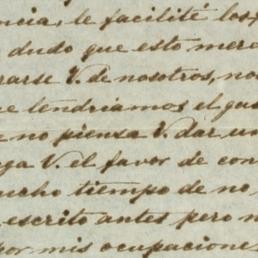 ncia, le facilité los
dudo que esto mere
rarse V. de nosotros, nos
e tendriamos el gus
e no piensa V. dar un
ga V. el favor de con
ucho tiempo de no
escrito antes pero n
por mis ocupacione